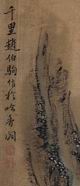 千里趙伯駒作於吟香閣